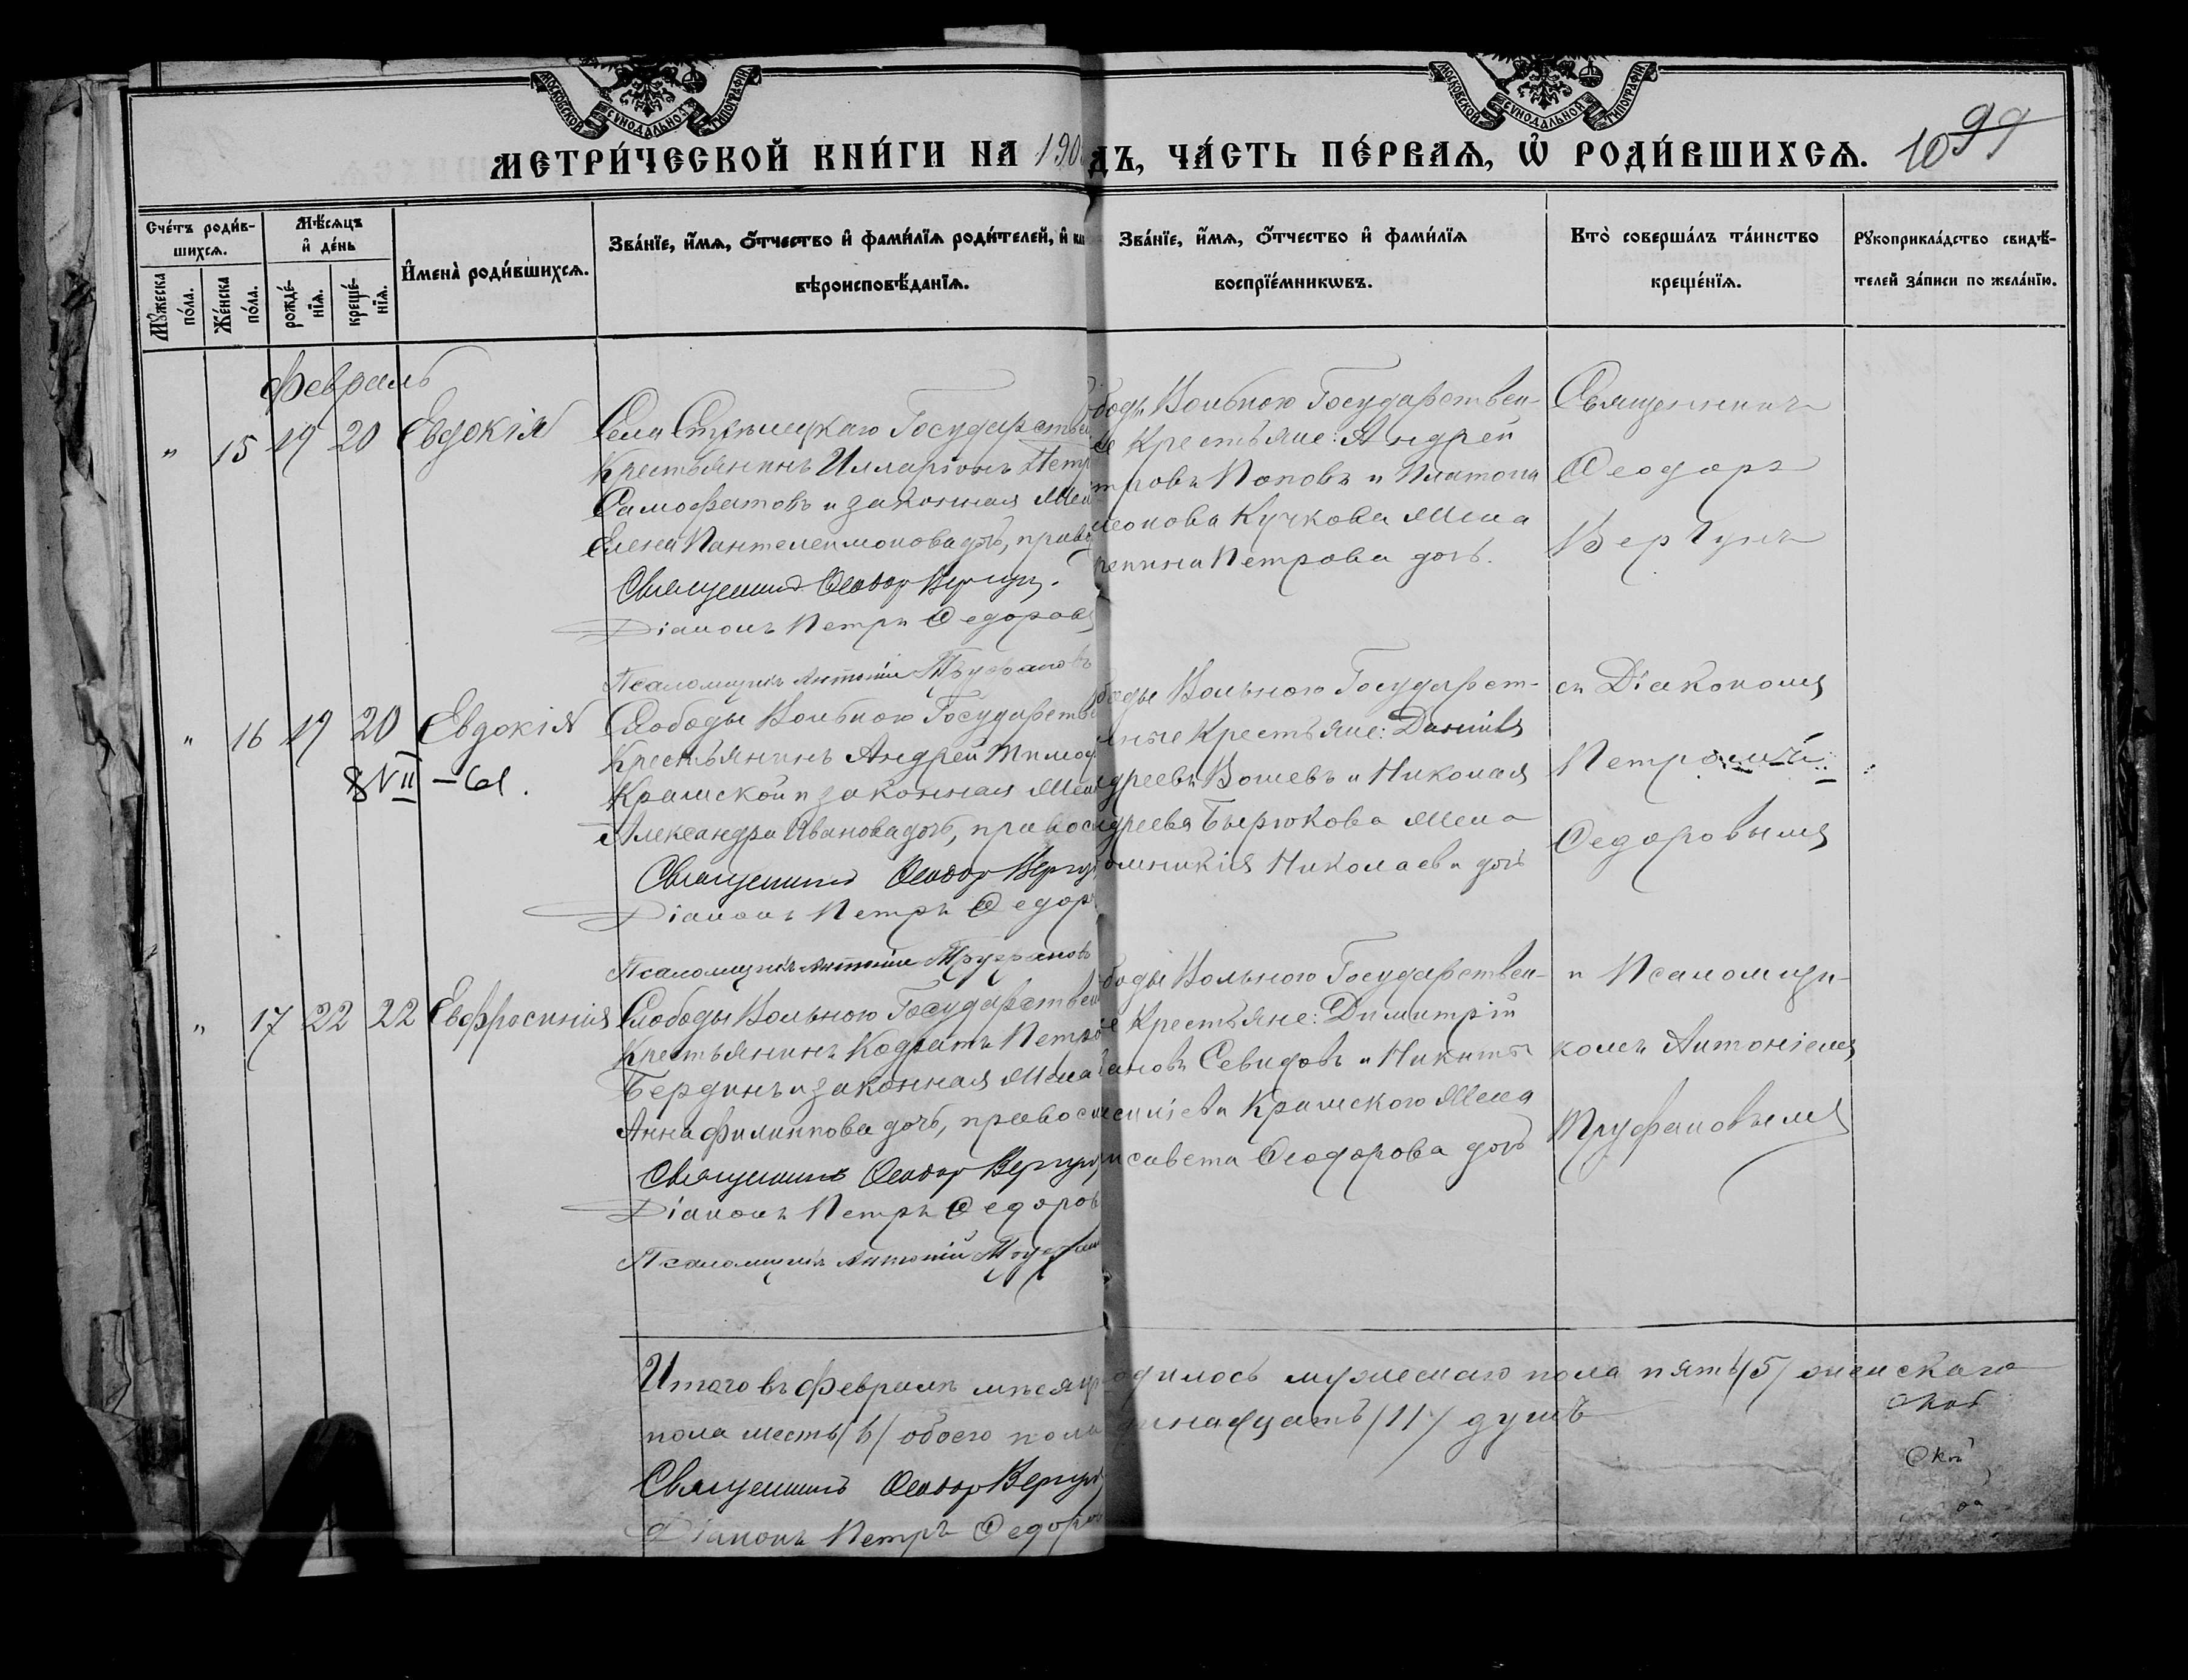 МОСКОВСКОЙ СѴНОДАЛЬНОЙ ТИПОГРАФІИ
МОСКОВСКОЙ СѴНОДАЛЬНОЙ ТИПОГРАФІИ
МЕТРИ́ЧЕСКОЙ КНИ́ГИ НА 190
ДЪ, ЧА́СТЬ ПЕ́РВАѦ, Ѡ҆ РОДИ́ВШИХСѦ.
10 99
Сче́тъ роди́в-
шихсѧ.
Мꙋ́жеска по́ла.
Же́нска по́ла.
Мѣ́сѧцъ
и҆ де́нь
рожде́-нїѧ.
креще́-нїѧ.
И҆мена̀ роди́вшихсѧ.
Зва́нїе, и҆́мѧ, ѻ҆́тчество и҆ фами́лїѧ роди́телей, и҆ как
вѣроисповѣ́данїѧ.
Зва́нїе, и҆́мѧ, ѻ҆́тчество и҆ фами́лїѧ
воспрїе́мникѡвъ.
Кто̀ соверша́лъ та́инство
креще́нїѧ.
Рꙋкоприкла́дство свидѣ́-
телей за́писи по жела́нїю.
Февраль
" 15 19 20 Евдокія
Села Стрѣлецкаго Государствен
Крестьянинъ Илларіонъ Петр
Самофатовъ и законная Жен
Елена Пантелеимонова дочь, прав
Священникъ Ѳеодоръ Вергунъ.
Діаконъ Петръ Ѳедоровъ
Псаломщикъ Антоній Труфановъ
боды Вольною Государствен-
е Крестьяне: Андрей
тровъ Поповъ и Платона
меонова Кучкова Жена
Петрова дочь.
Священникъ
Ѳеодоръ
Вергунъ
" 16 19 20 Евдокія
8 VII – 61.
Слободы Вольною Государств
Крестьянинъ Андрей Тимоѳ
Крамской и законная Жен
Александра Иванова дочь, правос
Священникъ Ѳеодоръ Вергун
Діаконъ Петръ Ѳедор
Псаломщикъ Антоній Труфановъ
боды Вольною Государст-
нные Крестьяне: Даніилъ
дреевъ и Николая
дреева Бирюкова Жена
Николаева дочь
съ Діакономъ
Петромъ
Ѳедоровымъ
" 17 22 22 Евфросинія
Слободы Вольною Государствен
Крестьянинъ Кодратъ Петро
Бердинъ и законная Жена
Анна Филиппова дочь, правосл
Священникъ Ѳеодоръ Вергунъ
Діаконъ Петръ Ѳедоров
Псаломщикъ Антоній Труфан
боды Вольною Государствен-
е Крестьяне: Димитрій
ановъ Севидовъ и Никиты
Крамскою Жена
исавета Ѳеодорова дочь
и Псаломщи-
комъ Антоніемъ
Труфановымъ
Итого въ Февралѣ мѣсяцѣ
одилось мужескаго пола пять /5/ женскаго
пола шесть /6/ обоего пола
динадцать /11/ душъ
Священникъ Ѳеодоръ Вергунъ
Діаконъ Петръ Ѳедоров